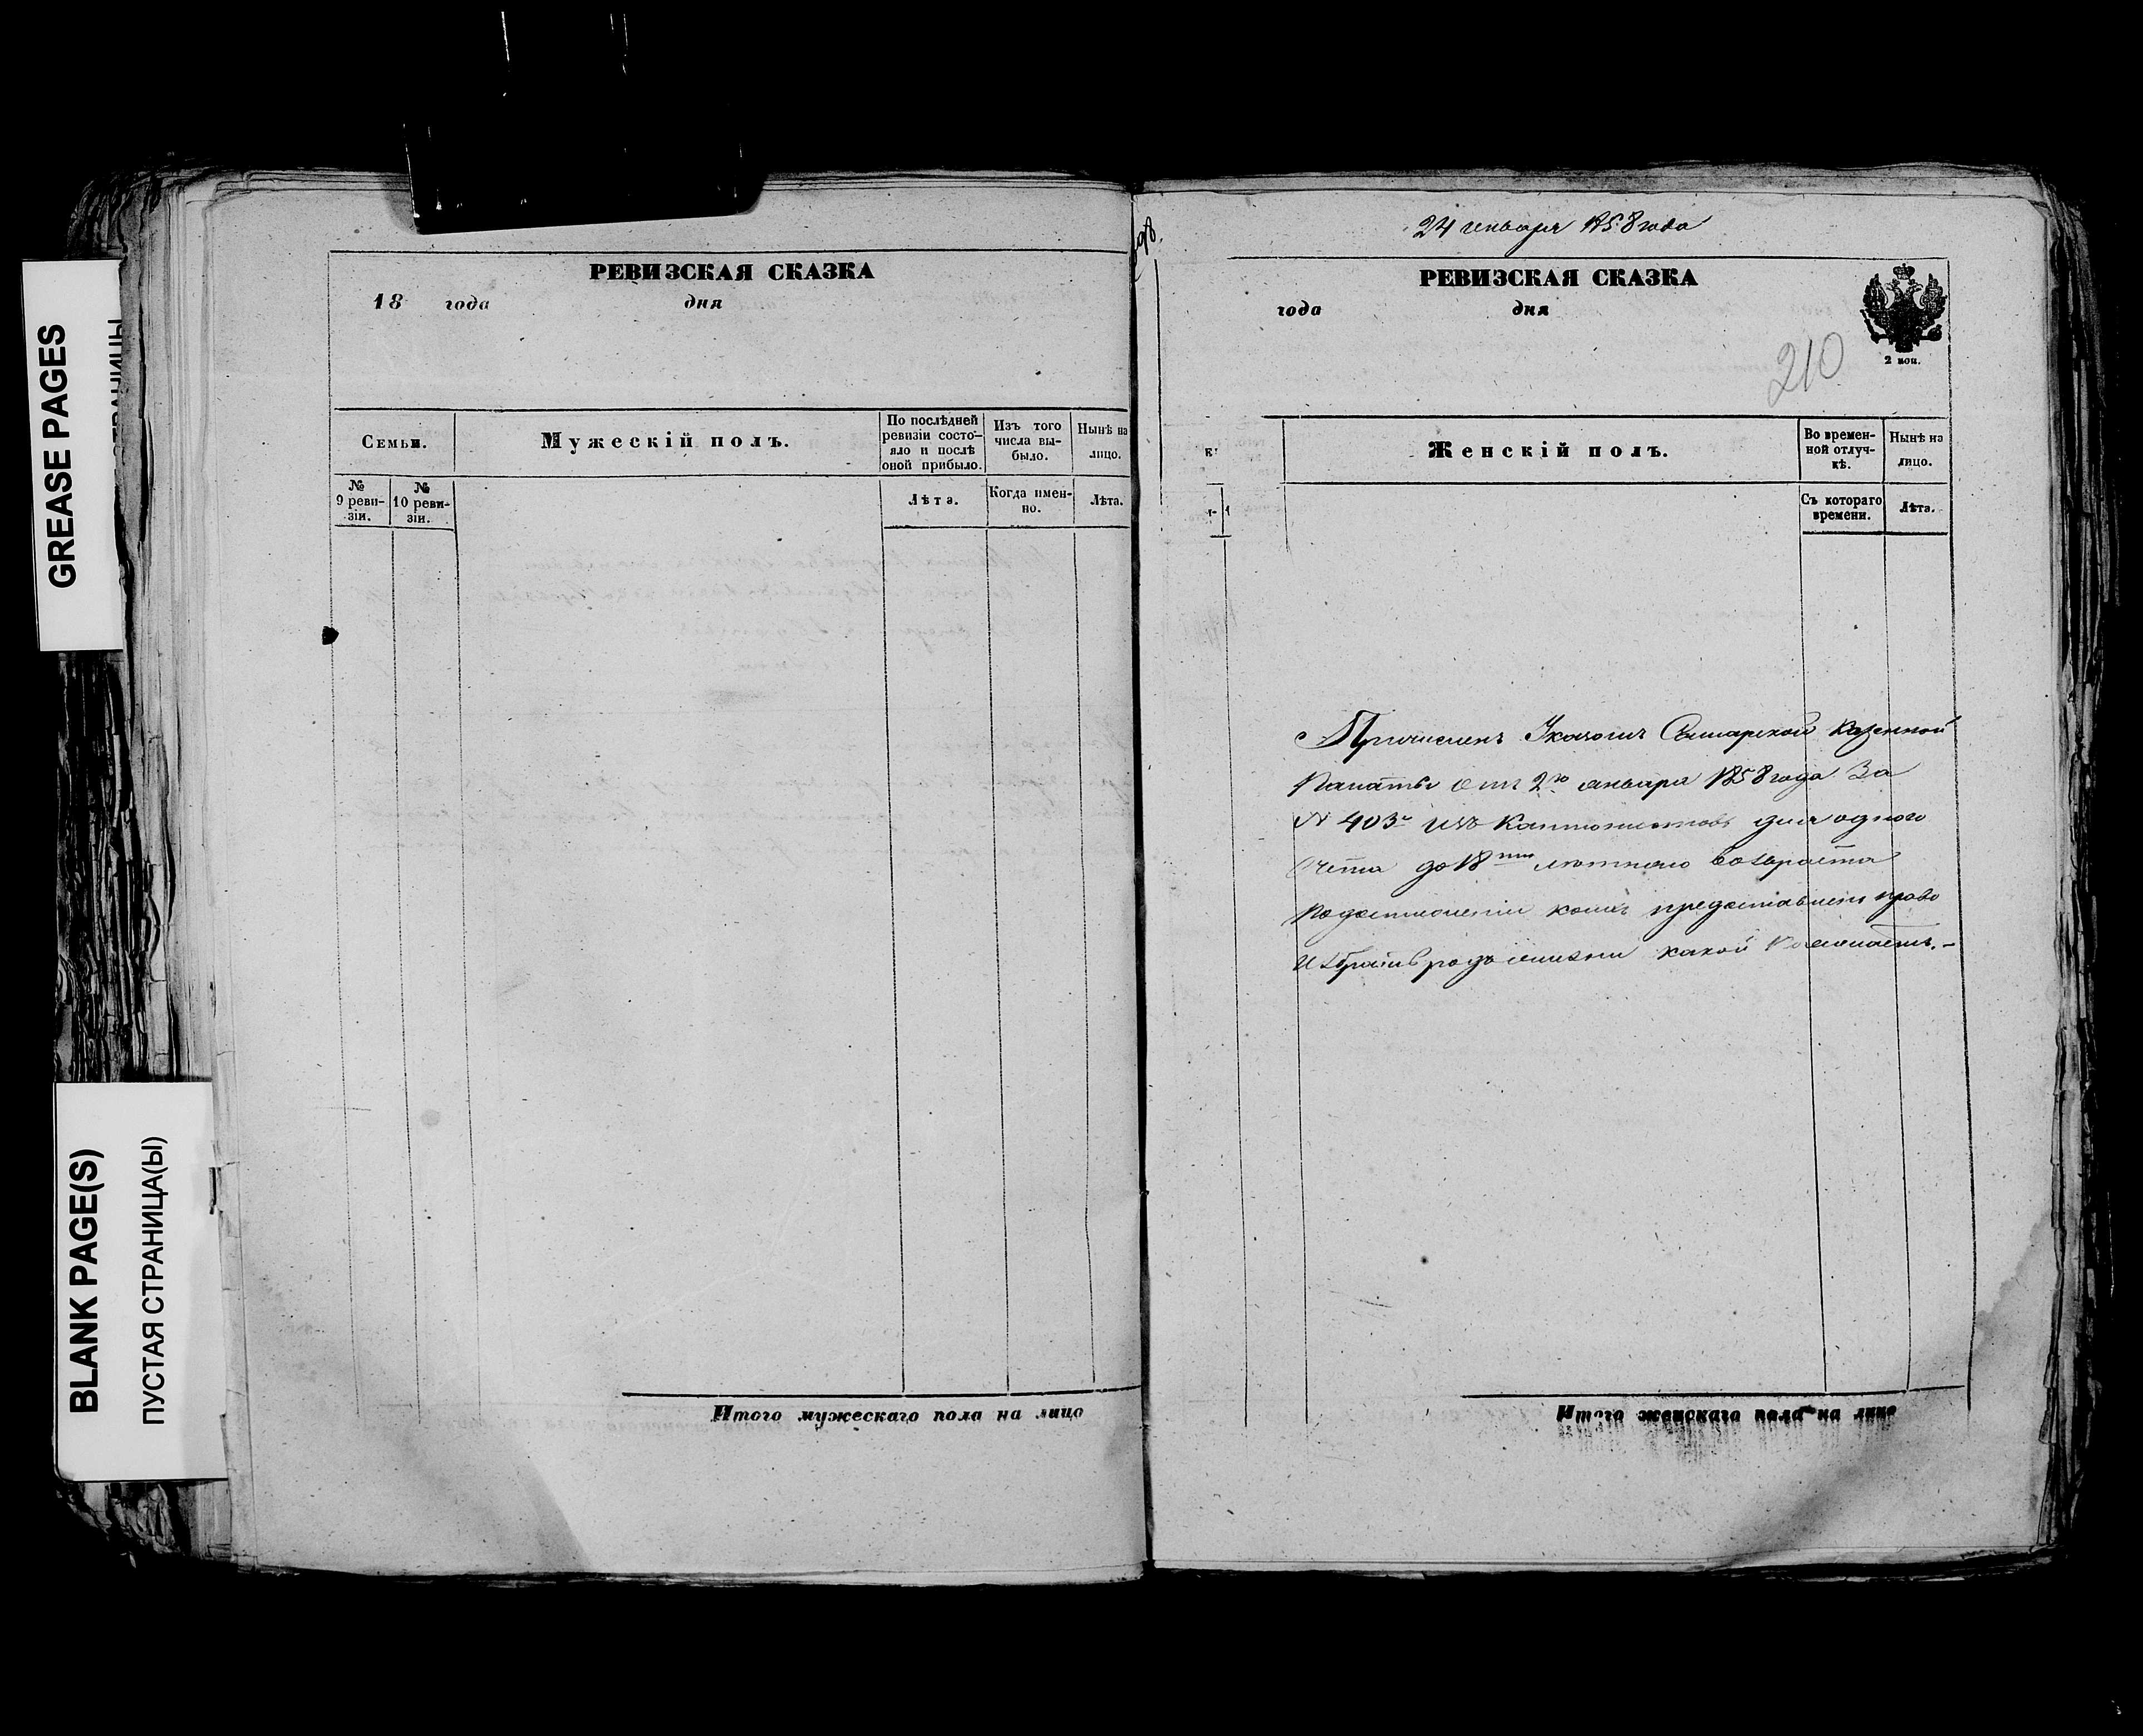 GREASE PAGES
BLANK PAGE(S)
ПУСТАЯ СТРАНИЦА(Ы)
РЕВИЗСКАЯ СКАЗКА
18 года дня
Семьи.
Мужескій полъ.
По послѣдней ревизіи состояло и послѣ оной прибыло.
Изъ того числа выбыло.
Нынѣ на лицо.
№ 9 ревизіи.
№ 10 ревизіи.
Лѣта.
Когда именно.
Лѣта.
Итого мужескаго пола на лицо
24 января 1858 года
РЕВИЗСКАЯ СКАЗКА
года дня
2 коп.
210
Женскій полъ.
Во временной отлучкѣ.
Нынѣ на лицо.
Съ котораго времени.
Лѣта.
Причисленъ Указомъ Самарской Казенной
Палаты отъ 2го января 1858 года За
N 403 изъ Кантонистовъ для одного
Счета до 18 лѣтняго возраста
По достиженіи коихъ предоставлено право
Избрать родъ жизни какой
Итого женскаго пола на лицо